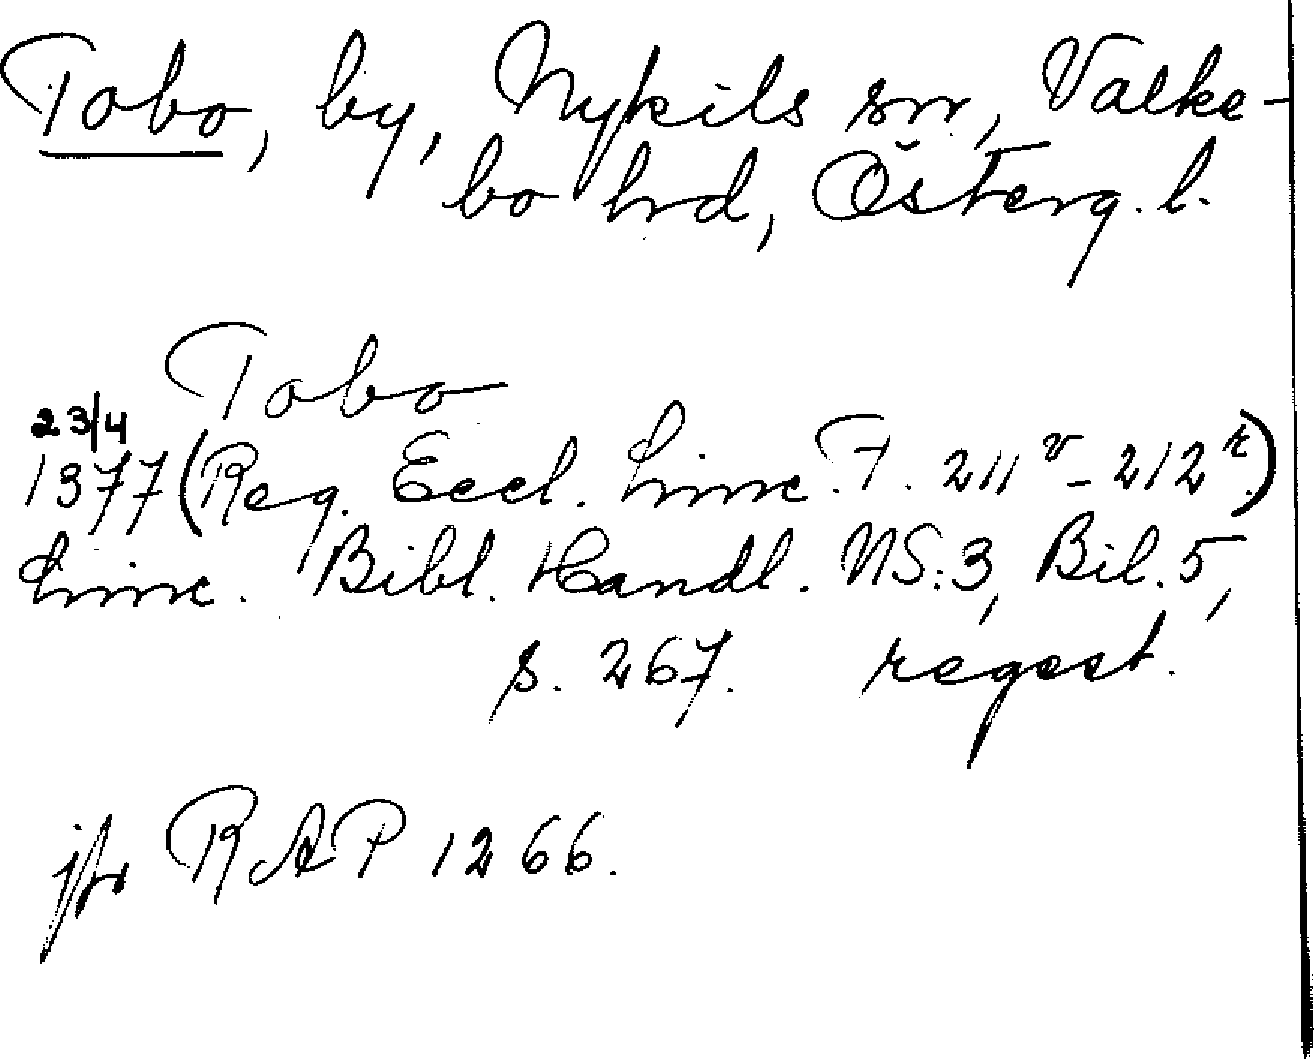 Tobo, by, Nykils sn, Valke-
bo hrd, Österg. l.
Tobo
23/4
1377 (Reg. Eccl. Linc. F. 211v - 212r.)
Linc. Bibl. Handl. NS: 3, Bil. 5,
s. 267. regest.
jfr RAP 1266.